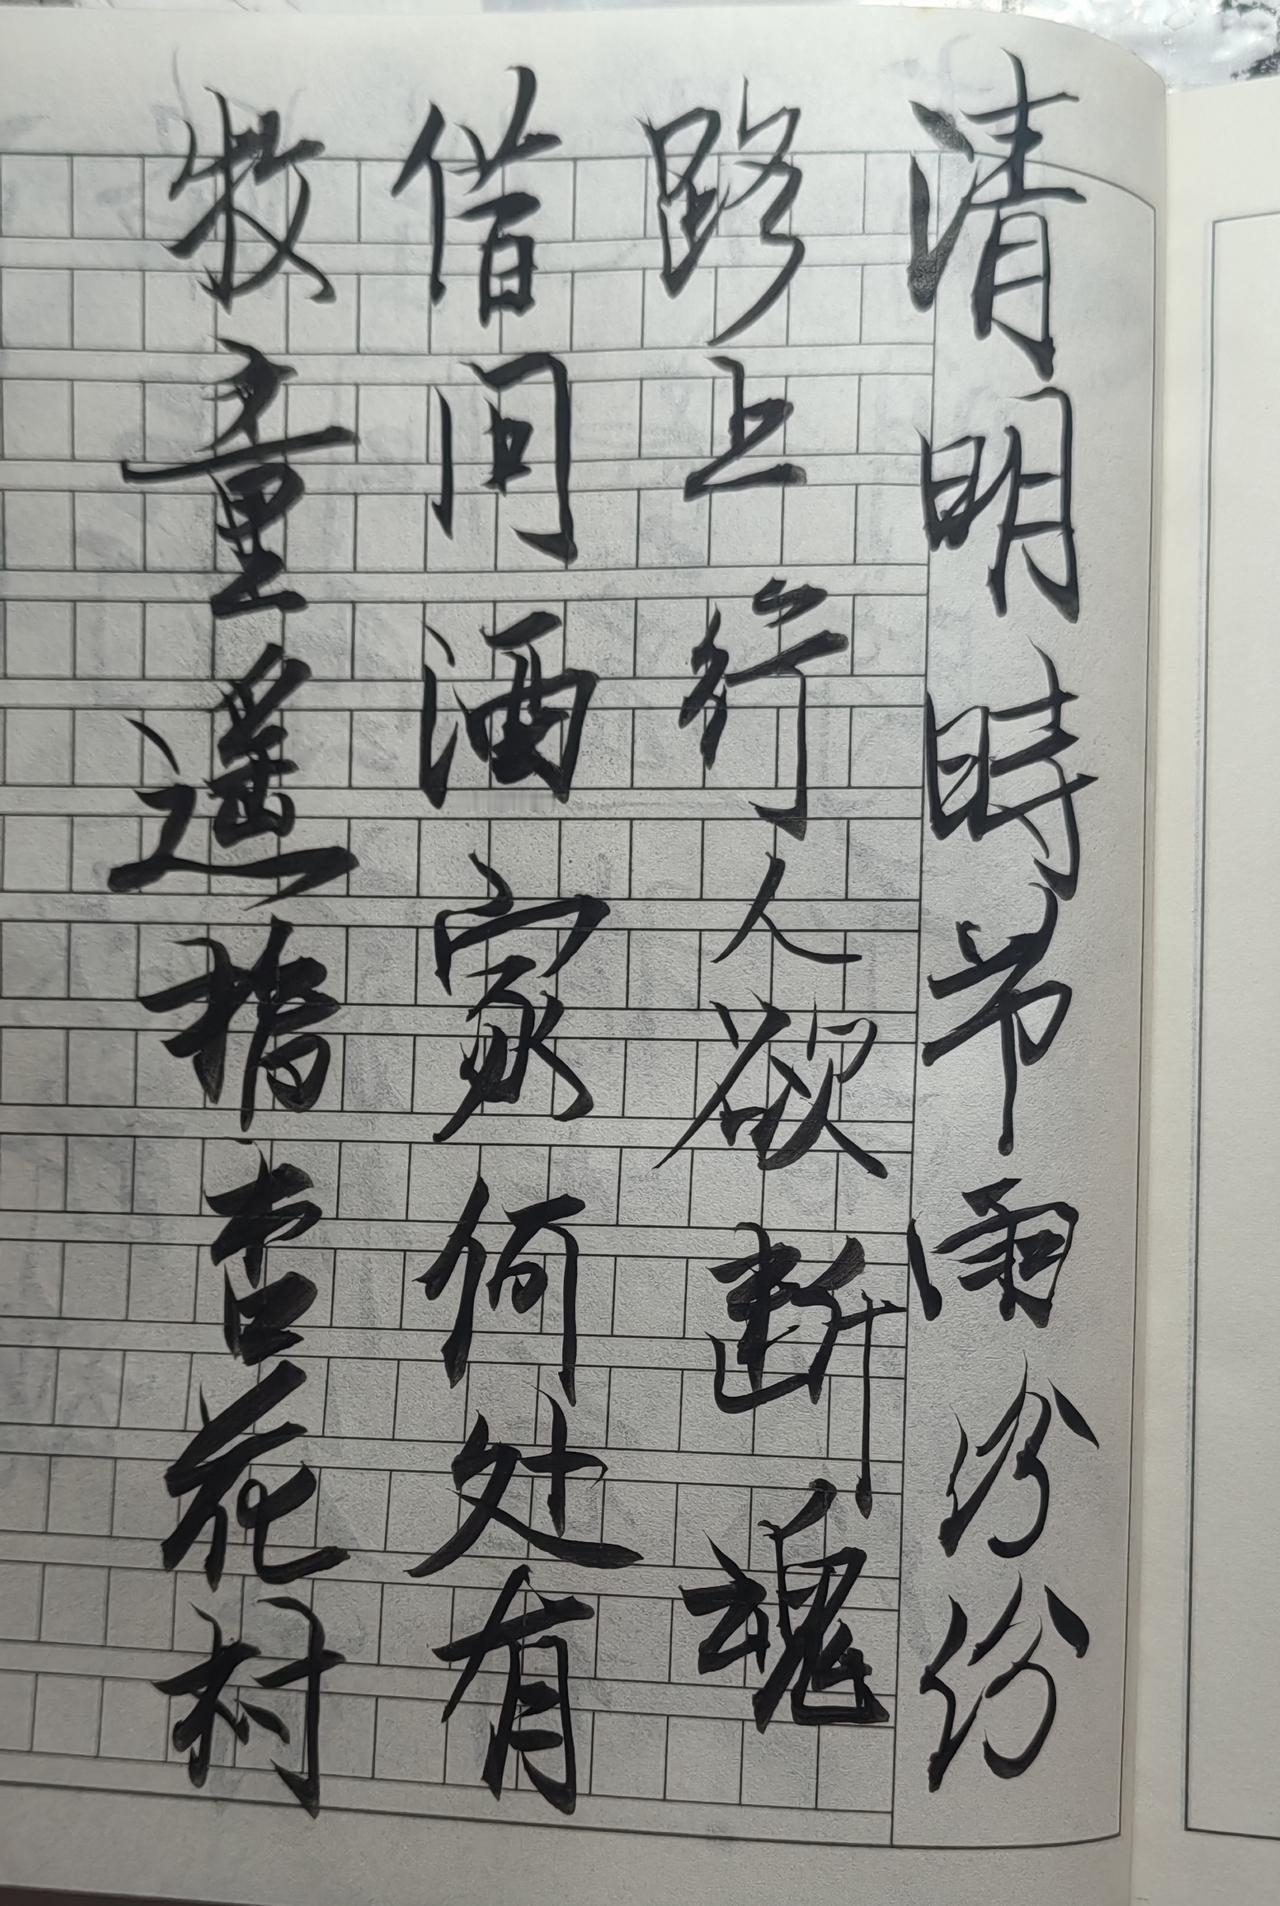 清明時节雨纷份
路上行人欲断魂
借问酒家何处有
牧童遥指杏花村